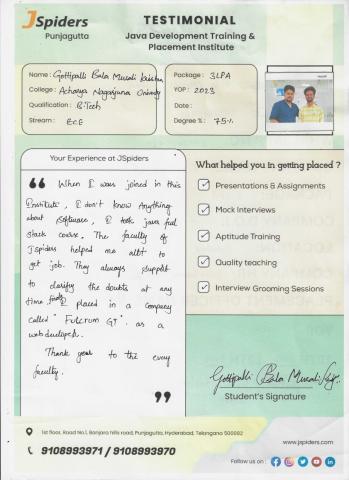 JSpiders
Punjagutta
TESTIMONIAL
Java Development Training &
Placement Institute
Name : Gottipalli Bala Murali krishna
College : Acharya Nagarjuna University
Qualification : B.Tech
Stream : ECE
Package : 3LPA
YOP : 2023
Date :
Degree % : 75%
Your Experience at JSpiders
When I was joined in this
Institute, I don't know Anything
about software, I took java full
stack course, The faculty of
Jspiders helped me allt to
get job. They always support
to clarify the doubts at any
time, I placed in a company
called "Fulcrum GT" as a
web developer.
Thank you to the every
faculty.
What helped you in getting placed ?
Presentations & Assignments
Mock Interviews
Aptitude Training
Quality teaching
Interview Grooming Sessions
Gottipalli Bala Murali
Student's Signature
1st floor, Road No.1, Banjara hills road, Punjagutta, Hyderabad, Telangana 500082
9108993971 / 9108993970
www.jspiders.com
Follow us on :